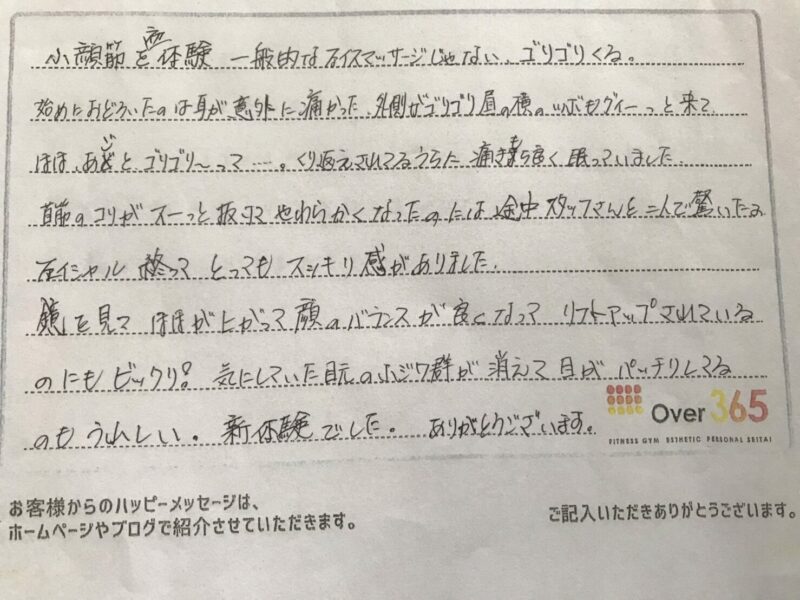 小顔筋を体験 一般的なフェイスマッサージじゃない、ゴリゴリくる。
始めにおどろいたのは耳が、意外に痛かった、外側がゴリゴリ肩の横のツボもグイーっと来て、
ほほ、あごと、ゴリゴリ〜って……。くり返えされてるうちに 痛き持ち良く 眠っていました。
首筋のコリが スーっと 抜けて やわらかくなったのには 途中 スタッフさんと 二人で 驚いたよ
フェイシャル 終って とっても スッキリ 感がありました。
鏡を見て ほほが上がって 顔のバランスが 良くなって リフトアップされている
のにも ビックリ! 気にしていた目元の小ジワ群が 消えて 目が パッチリしてる
のも うれしい。 新体験でした。 ありがとうございます。
Over 365
FITNESS GYM ESTHETIC PERSONAL SEITAI
お客様からのハッピーメッセージは、
ホームページやブログで紹介させていただきます。
ご記入いただきありがとうございます。